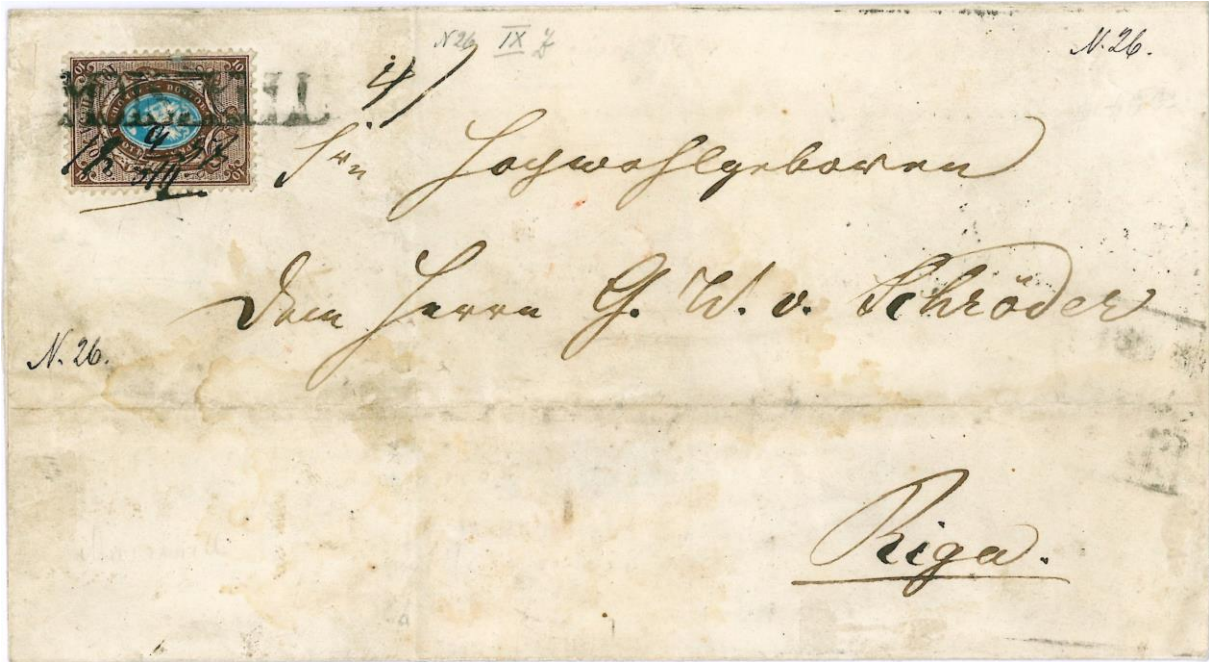 N 26 IX
N. 26.
4)
Hochwohlgeboren
Dem Herrn G. W. v. Schröder
N. 26.
Riga.